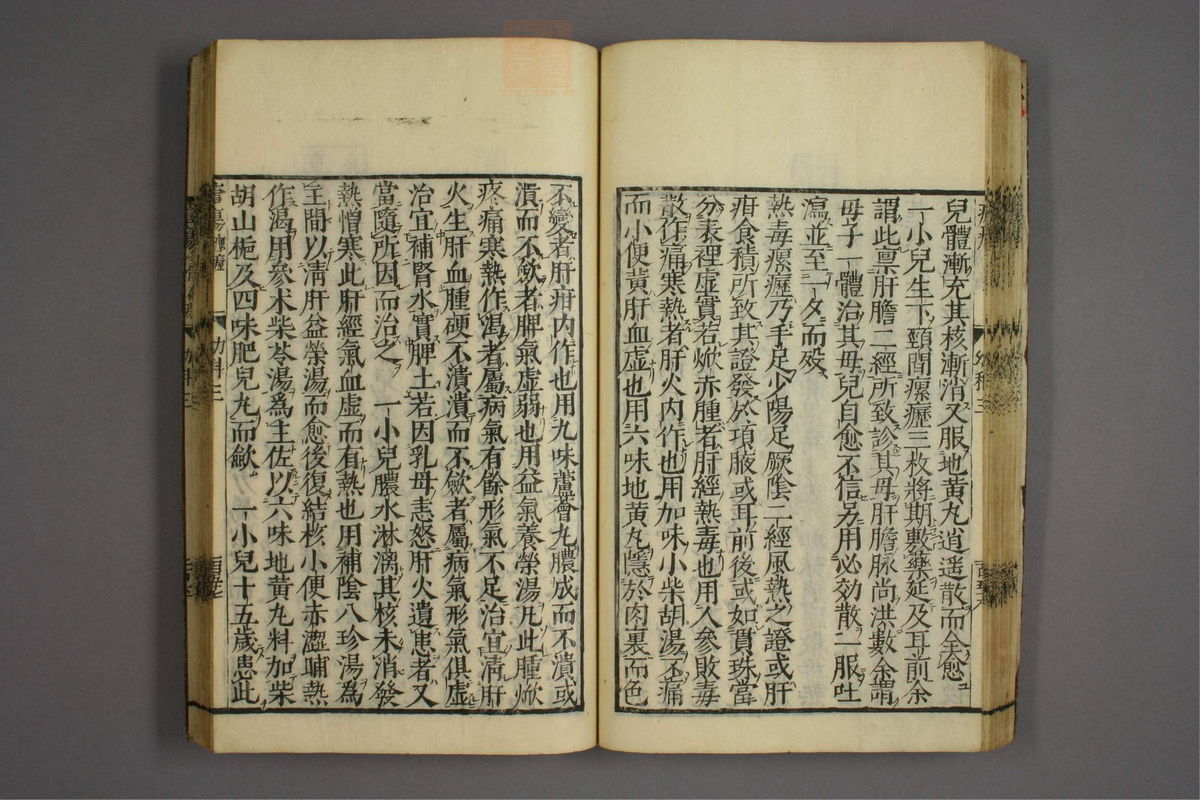 兒體漸充其核漸消又服地黄丸逍遥散而全愈
一小兒生下頸間瘰癧三枚將期敷藥延及耳前余
謂此禀肝膽二經所致診其母肝膽脉尚洪數余謂
母子一體治其母兒自愈不信另用必効散二服吐
瀉並至一夕而殁
熱毒瘰癧乃手足少陽足厥陰二經風熱之證或肝
疳食積所致其證發於項腋或耳前後或如貫珠當
分表裡虚實若焮赤腫者肝經熱毒也用人參敗毒
散作痛寒熱者肝火内作也用加味小柴胡湯不痛
而小便黄肝血虚也用六味地黄丸隱於肉裏而色
不變者肝疳内作也用九味蘆薈丸膿成而不潰或
潰而不歛者脾氣虚弱也用益氣養榮湯凡此腫焮
疼痛寒熱作渴者屬病氣有餘形氣不足治宜清肝
火生肝血腫硬不潰潰而不歛者屬病氣形氣俱虚
治宜補腎水實脾土若因乳母恚怒肝火遺患者又
當隨所因而治之 一小兒膿水淋漓其核未消發
熱憎寒此肝經氣血虚而有熱也用補陰八珍湯爲
主間以清肝益榮湯而愈後復結核小便赤澀晡熱
作渴用參术柴苓湯爲主佐以六味地黄丸料加柴
胡山梔及四味肥兒丸而歛 一小兒十五歲患此